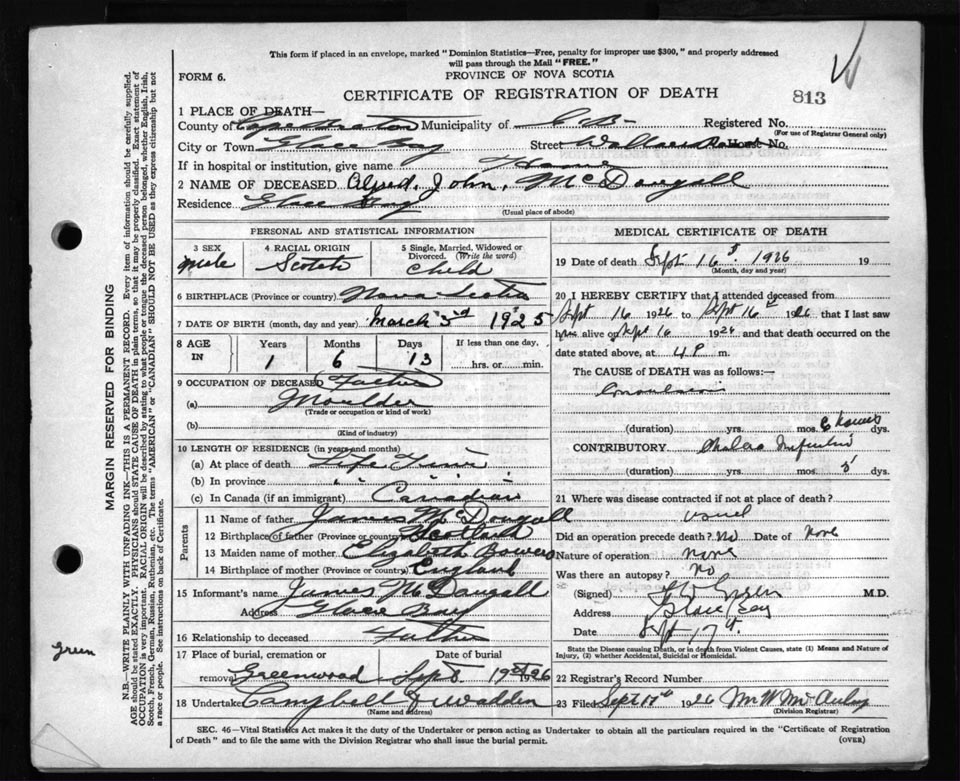 This form if placed in an envelope, marked "Dominion Statistics—Free, penalty for improper use $300," and properly addressed
will pass through the Mail "FREE."
FORM 6.
PROVINCE OF NOVA SCOTIA
CERTIFICATE OF REGISTRATION OF DEATH
813
1 PLACE OF DEATH—
County of Cape Breton Municipality of C.B- Registered No.
(For use of Registrar General only)
City or Town Glace Bay Street Wallace Road House No.
If in hospital or institution, give name Home
2 NAME OF DECEASED Alfred, John, McDougall
Residence Glace Bay
(Usual place of abode)
PERSONAL AND STATISTICAL INFORMATION
3 SEX Male
4 RACIAL ORIGIN Scotch
5 Single, Married, Widowed or Divorced. (Write the word) Child
6 BIRTHPLACE (Province or country) Nova Scotia
7 DATE OF BIRTH (month, day and year) March 3rd 1925
8 AGE IN
Years Months Days If less than one day,
1 6 13 hrs. or min.
9 OCCUPATION OF DECEASED Father
(a) Moulder
(Trade or occupation or kind of work)
(b)
(Kind of industry)
10 LENGTH OF RESIDENCE (in years and months)
(a) At place of death Life Time
(b) In province " "
(c) In Canada (if an immigrant) Canadian
Parents
11 Name of father James McDougall
12 Birthplace of father (Province or country) Scotland
13 Maiden name of mother Elizabeth Bowers
14 Birthplace of mother (Province or country) England
15 Informant's name James McDougall
Address Glace Bay
16 Relationship to deceased Father
17 Place of burial, cremation or removal Greenwood
Date of burial Sept 17th 1926
18 Undertaker Campbell & Walden
(Name and address)
MEDICAL CERTIFICATE OF DEATH
19 Date of death Sept 16th 1926 19
(Month, day and year)
20 I HEREBY CERTIFY that I attended deceased from
Sept 16 1926 to Sept 16th 1926 that I last saw
alive on Sept 16 1926 and that death occurred on the
date stated above, at 4 P m.
The CAUSE of DEATH was as follows:—
Convulsions
(duration) yrs. mos. 6 hours dys.
CONTRIBUTORY Cholera Infantum
(duration) yrs. mos. 3 dys.
21 Where was disease contracted if not at place of death?
usual
Did an operation precede death? No Date of None
Nature of operation none
Was there an autopsy? no
(Signed) Green M.D.
Address Glace Bay
Date Sept 17th
State the Disease causing Death, or in death from Violent Causes, state (1) Means and Nature of
Injury, (2) whether Accidental, Suicidal or Homicidal.
22 Registrar's Record Number
23 Filed Sept 17th 1926 McAulay
(Division Registrar)
SEC. 46—Vital Statistics Act makes it the duty of the Undertaker or person acting as Undertaker to obtain all the particulars required in the "Certificate of Registration
of Death" and to file the same with the Division Registrar who shall issue the burial permit.
(OVER)
MARGIN RESERVED FOR BINDING
N.B.—WRITE PLAINLY WITH UNFADING INK—THIS IS A PERMANENT RECORD. Every item of information should be carefully supplied.
AGE should be stated EXACTLY. PHYSICIANS should STATE CAUSE OF DEATH in plain terms, so that it may be properly classified. Exact statement of
OCCUPATION is very important. RACIAL ORIGIN will be described by stating to what people or tongue the deceased person belonged, whether English, Irish,
Scotch, French, German, Russian, Ruthenian, etc. The terms "AMERICAN" or "CANADIAN" SHOULD NOT BE USED as they express citizenship but not
a race or people. See instructions on back of Certificate.
Green